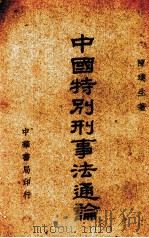 陳瑾昆著
中國特別刑事法通論
中華書局印行